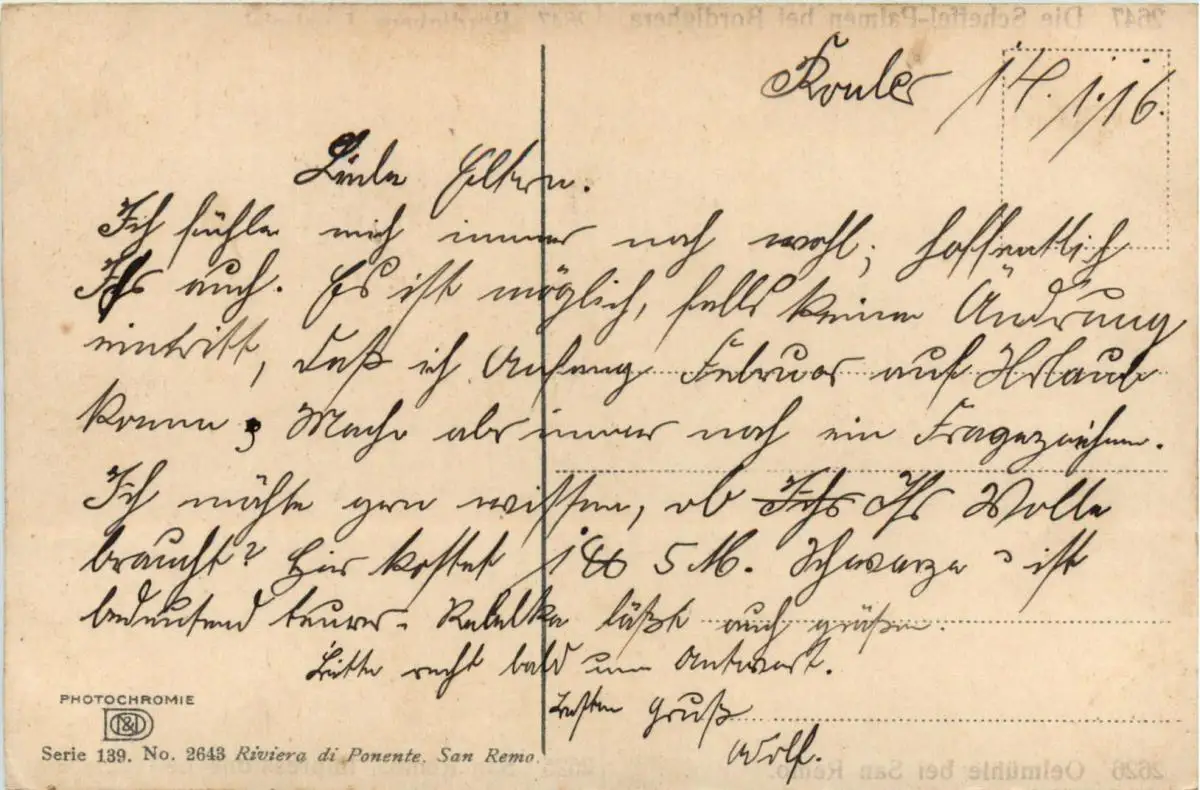 Rouler 14./1.16.
Liebe Eltern.
Ich fühle mich immer noch wohl; hoffentlich
Ihr auch. Es ist möglich, falls keine Ändrung
eintritt, daß ich Anfang Februar auf Urlaub
komme. Mache aber immer noch ein Fragezeichen.
Ich möchte gern wissen, ob Ihr Ihr Wolle
braucht? Hier kostet 1 ℔ 5 M. Schwarze ist
bedeutend teurer. läßt auch grüßen.
Bitte recht bald um Antwort.
Besten Gruß
Wolf.
PHOTOCHROMIE
Serie 139. No. 2643 Riviera di Ponente. San Remo.
2647 Die Scheffel-Palmen bei Bordighera
2626 Oelmühle bei San Remo.